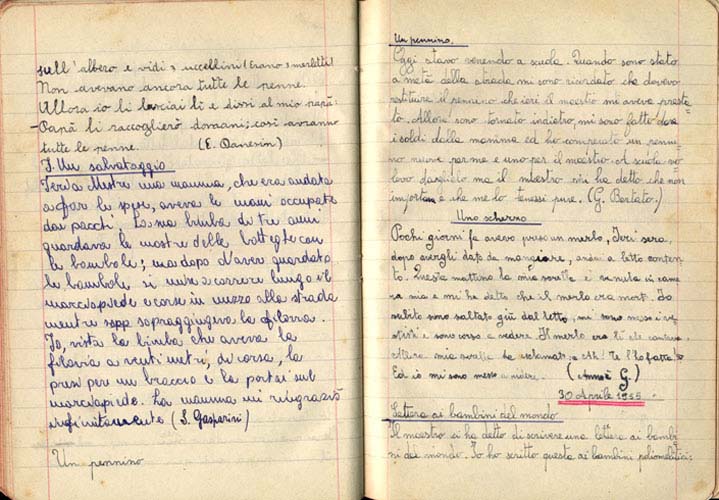 sull'albero e vidi 3 uccellini (Erano 3 merlotti)
Non avevano ancora tutte le penne.
Allora io li lasciai lì e dissi al mio papà:
- Papà li raccoglierò domani; così avranno
tutte le penne. (E.
3. Un salvataggio
Ieri a Mestre una mamma, che era andata
a far le spese, aveva le mani occupate
dai pacchi. La sua bimba di tre anni
guardava le mostre delle botteghe con
le bambole; ma dopo d'aver guardato
le bambole si mise a correre lungo il
marciapiede e corse in mezzo alla strada
mentre sopraggiungeva la filovia.
Io, vista la bimba che aveva la
filovia a venti metri, di corsa, la
presi per un braccio e la portai sul
marciapiede. La mamma mi ringraziò
infinitamente (S. Gasparini)
Un pennino
Un pennino.
Oggi stavo venendo a scuola. Quando sono stato
a metà della strada mi sono ricordato che dovevo
restituire il pennino che ieri il maestro mi aveva presta
to. Allora sono tornato indietro, mi sono fatto dare
i soldi dalla mamma ed ho comperato un penni
no nuovo per me e uno per il maestro. A scuola vo
levo darglielo ma il maestro mi ha detto che non
importa e che me lo tenessi pure. (G. Bertato.)
Uno scherzo
Pochi giorni fa avevo preso un merlo, Ieri sera,
dopo avergli dato da mangiare, andai a letto conten
to. Questa mattina la mia sorella è venuta in came
ra mia e mi ha detto che il merlo era morto. Io
subito sono saltato giù dal letto, mi sono messo i ve
stiti e sono corso a vedere. Il merlo era lì che cantava.
Allora mia sorella ha esclamato: Ah! Te l'ho fatta!
Ed io mi sono messo a ridere. G.)
30 Aprile 1955
Lettera ai bambini del mondo.
Il maestro ci ha detto di scrivere una lettera ai bambi
ni del mondo. Io ho scritto questa ai bambini poliomielitici: